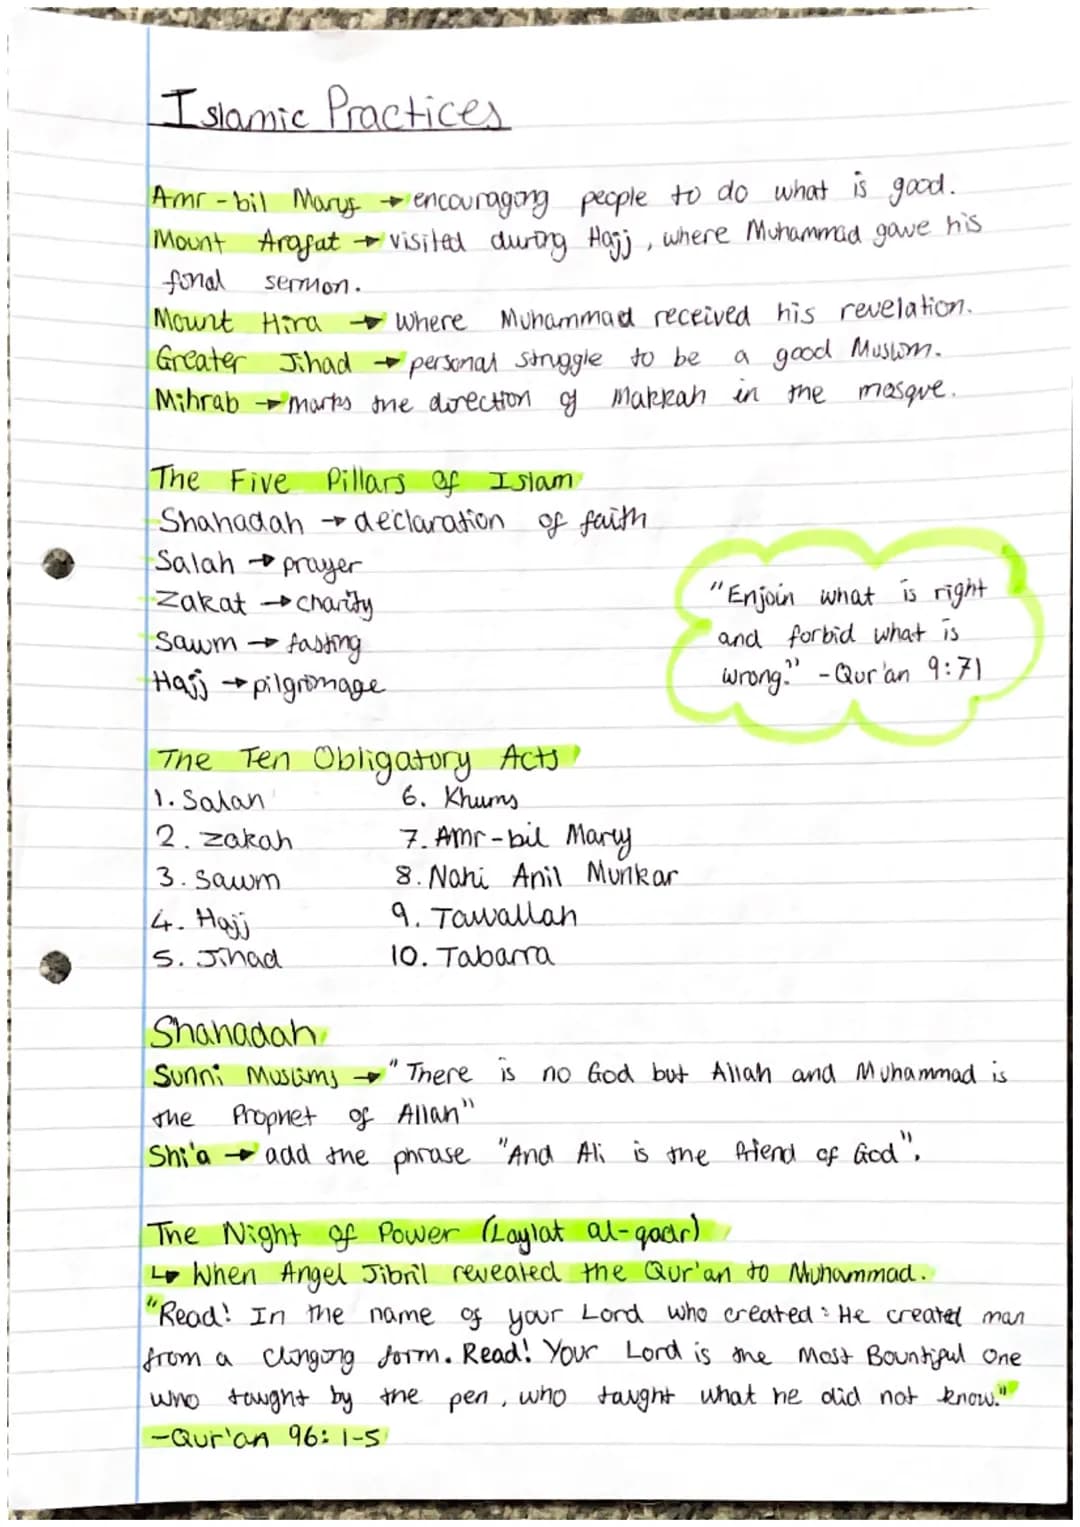 Islamic Practices
Amr-bil Maruf → encouraging people to do what is good.
Mount Arafat → visited during Hajj, where Muhammad gave his
final sermon.
Mount Hira → where Muhammad received his revelation.
Greater Jihad → personal struggle to be a good Muslim.
Mihrab → marks the direction of Makkah in the mosque.
The Five Pillars of Islam
Shahadah → declaration of faith
Salah → prayer
Zakat → charity
Sawm → fasting
Hajj → pilgrimage
"Enjoin what is right
and forbid what is
wrong." - Qur'an 9:71
The Ten Obligatory Acts
1. Salah
2. Zakah
3. Sawm
4. Hajj
5. Jihad
6. Khums
7. Amr-bil Maruf
8. Nahi Anil Munkar
9. Tawallah
10. Tabarra
Shahadah
Sunni Muslims → "There is no God but Allah and Muhammad is
the Prophet of Allah"
Shi'a → add the phrase "And Ali is the friend of God".
The Night of Power (Laylat al-qadr)
↳ When Angel Jibril revealed the Qur'an to Muhammad.
"Read! In the name of your Lord who created: He created man
from a clinging form. Read! Your Lord is the Most Bountiful One
who taught by the pen, who taught what he did not know."
-Qur'an 96: 1-5